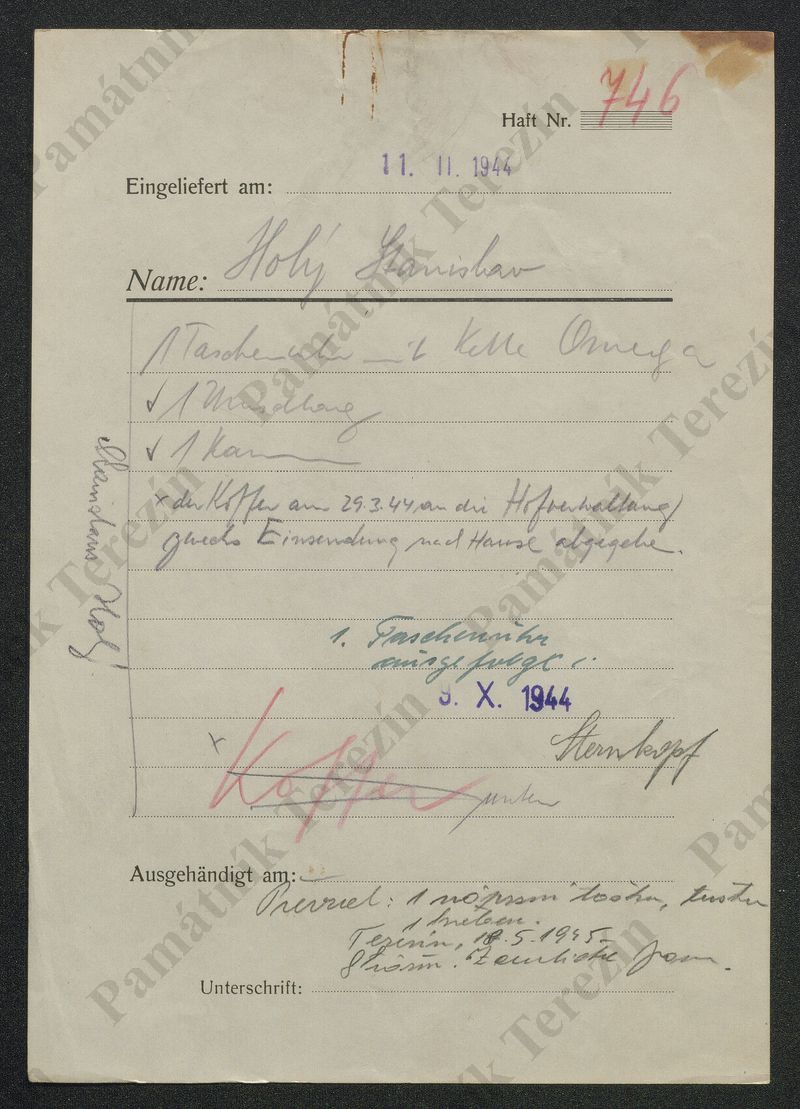 Haft Nr. 746
Eingeliefert am: 11. II. 1944
Name: Holý Stanislav
1 Taschenuhr mit Kette Omega
✓ 1
✓ 1 Kamm
× der Koffer am 29.3.44 an die Hofverwaltung
zwecks Einsendung nach Hause abgegebe.
Holý
1. Taschenuhr
ausgefolgt
9. X. 1944
Sternkopf
× Koffer
unten
Ausgehändigt am:
Převzel: 1 náprsní tašku,
1
Terezín, 5. 1945
Unterschrift:
Památník Terezín